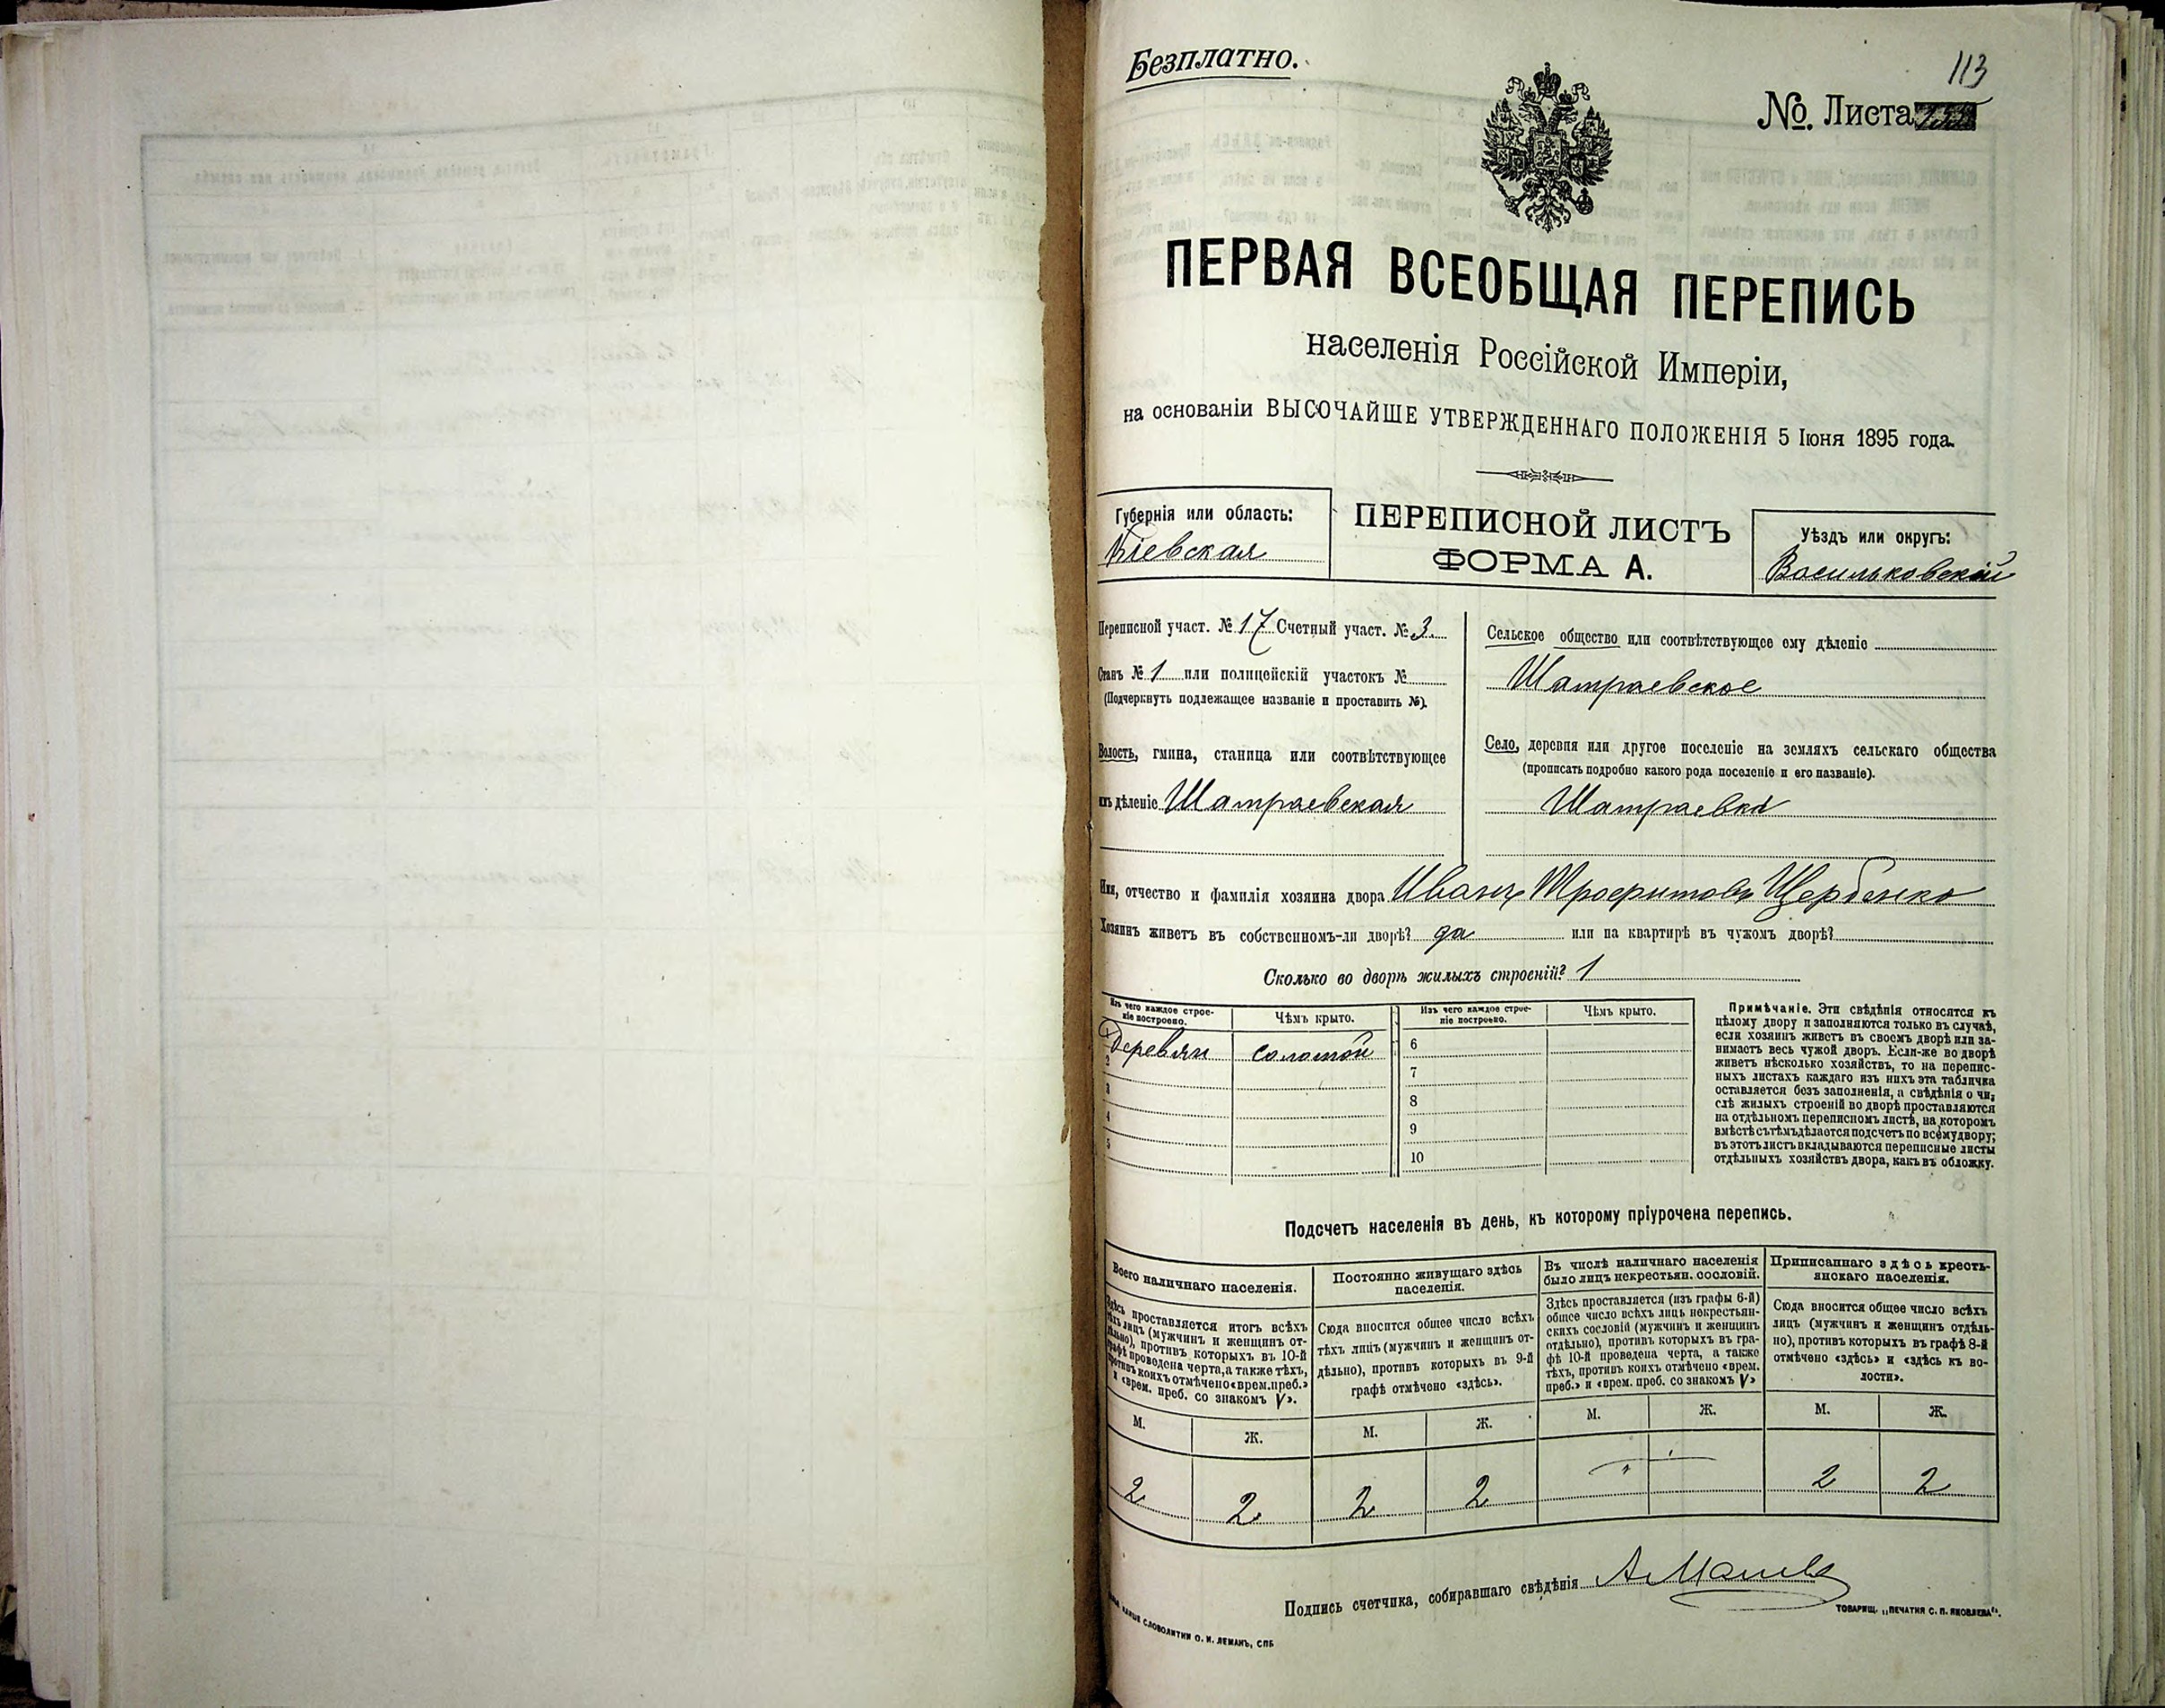 Безплатно.
113
№ Листа
ПЕРВАЯ ВСЕОБЩАЯ ПЕРЕПИСЬ
населенія Россійской Имперіи,
на основаніи ВЫСОЧАЙШЕ УТВЕРЖДЕННАГО ПОЛОЖЕНІЯ 5 Іюня 1895 года.
Губернія или область:
Кіевская
ПЕРЕПИСНОЙ ЛИСТЪ
ФОРМА А.
Уѣздъ или округъ:
Васильковскій
Переписной участ. № 17 Счетный участ. № 3
Станъ № 1 или полицейскій участокъ №
(Подчеркнуть подлежащее названіе и проставить №).
Волость, гмина, станица или соотвѣтствующее
имъ дѣленіе Шамраевская
Сельское общество или соотвѣтствующее ему дѣленіе
Шамраевское
Село, деревня или другое поселеніе на земляхъ сельскаго общества
(прописать подробно какого рода поселеніе и его названіе).
Шамраевка
Имя, отчество и фамилія хозяина двора Иванъ Трофимовъ Щербенко
Хозяинъ живетъ въ собственномъ-ли дворѣ? да или на квартирѣ въ чужомъ дворѣ?
Сколько во дворѣ жилыхъ строеній? 1
Изъ чего каждое строе-
ніе построено.
Чѣмъ крыто.
Изъ чего каждое строе-
ніе построено.
Чѣмъ крыто.
1 Деревян соломой
2
3
4
5
6
7
8
9
10
Примѣчаніе. Эти свѣдѣнія относятся къ
цѣлому двору и заполняются только въ случаѣ,
если хозяинъ живетъ въ своемъ дворѣ или за-
нимаетъ весь чужой дворъ. Если-же во дворѣ
живетъ нѣсколько хозяйствъ, то на перепис-
ныхъ листахъ каждаго изъ нихъ эта табличка
оставляется безъ заполненія, а свѣдѣнія о чи-
слѣ жилыхъ строеній во дворѣ проставляются
на отдѣльномъ переписномъ листѣ, на которомъ
вмѣстѣ съ тѣмъ дѣлается подсчетъ по всему двору;
въ этотъ листъ вкладываются переписные листы
отдѣльныхъ хозяйствъ двора, какъ въ обложку.
Подсчетъ населенія въ день, къ которому пріурочена перепись.
Всего наличнаго населенія.
Здѣсь проставляется итогъ всѣхъ
тѣхъ лицъ (мужчинъ и женщинъ от-
дѣльно), противъ которыхъ въ 10-й
графѣ проведена черта, а также тѣхъ,
противъ коихъ отмѣчено «врем. преб.»
и «врем. преб. со знакомъ V».
Постоянно живущаго здѣсь
населенія.
Сюда вносится общее число всѣхъ
тѣхъ лицъ (мужчинъ и женщинъ от-
дѣльно), противъ которыхъ въ 9-й
графѣ отмѣчено «здѣсь».
Въ числѣ наличнаго населенія
было лицъ некрестьян. сословій.
Здѣсь проставляется (изъ графы 6-й)
общее число всѣхъ лицъ некрестьян-
скихъ сословій (мужчинъ и женщинъ
отдѣльно), противъ которыхъ въ гра-
фѣ 10-й проведена черта, а также
тѣхъ, противъ коихъ отмѣчено «врем.
преб.» и «врем. преб. со знакомъ V»
Приписаннаго здѣсь кресть-
янскаго населенія.
Сюда вносится общее число всѣхъ
лицъ (мужчинъ и женщинъ отдѣль-
но), противъ которыхъ въ графѣ 8-й
отмѣчено «здѣсь» и «здѣсь къ во-
лости».
М. Ж. М. Ж. М. Ж. М. Ж.
2 2 2 2 " 2 2
Подпись счетчика, собиравшаго свѣдѣнія
СЛОВОЛИТНИ О. И. ЛЕМАНЪ, СПБ
ТОВАРИЩ. „ПЕЧАТНЯ С. П. ЯКОВЛЕВА".